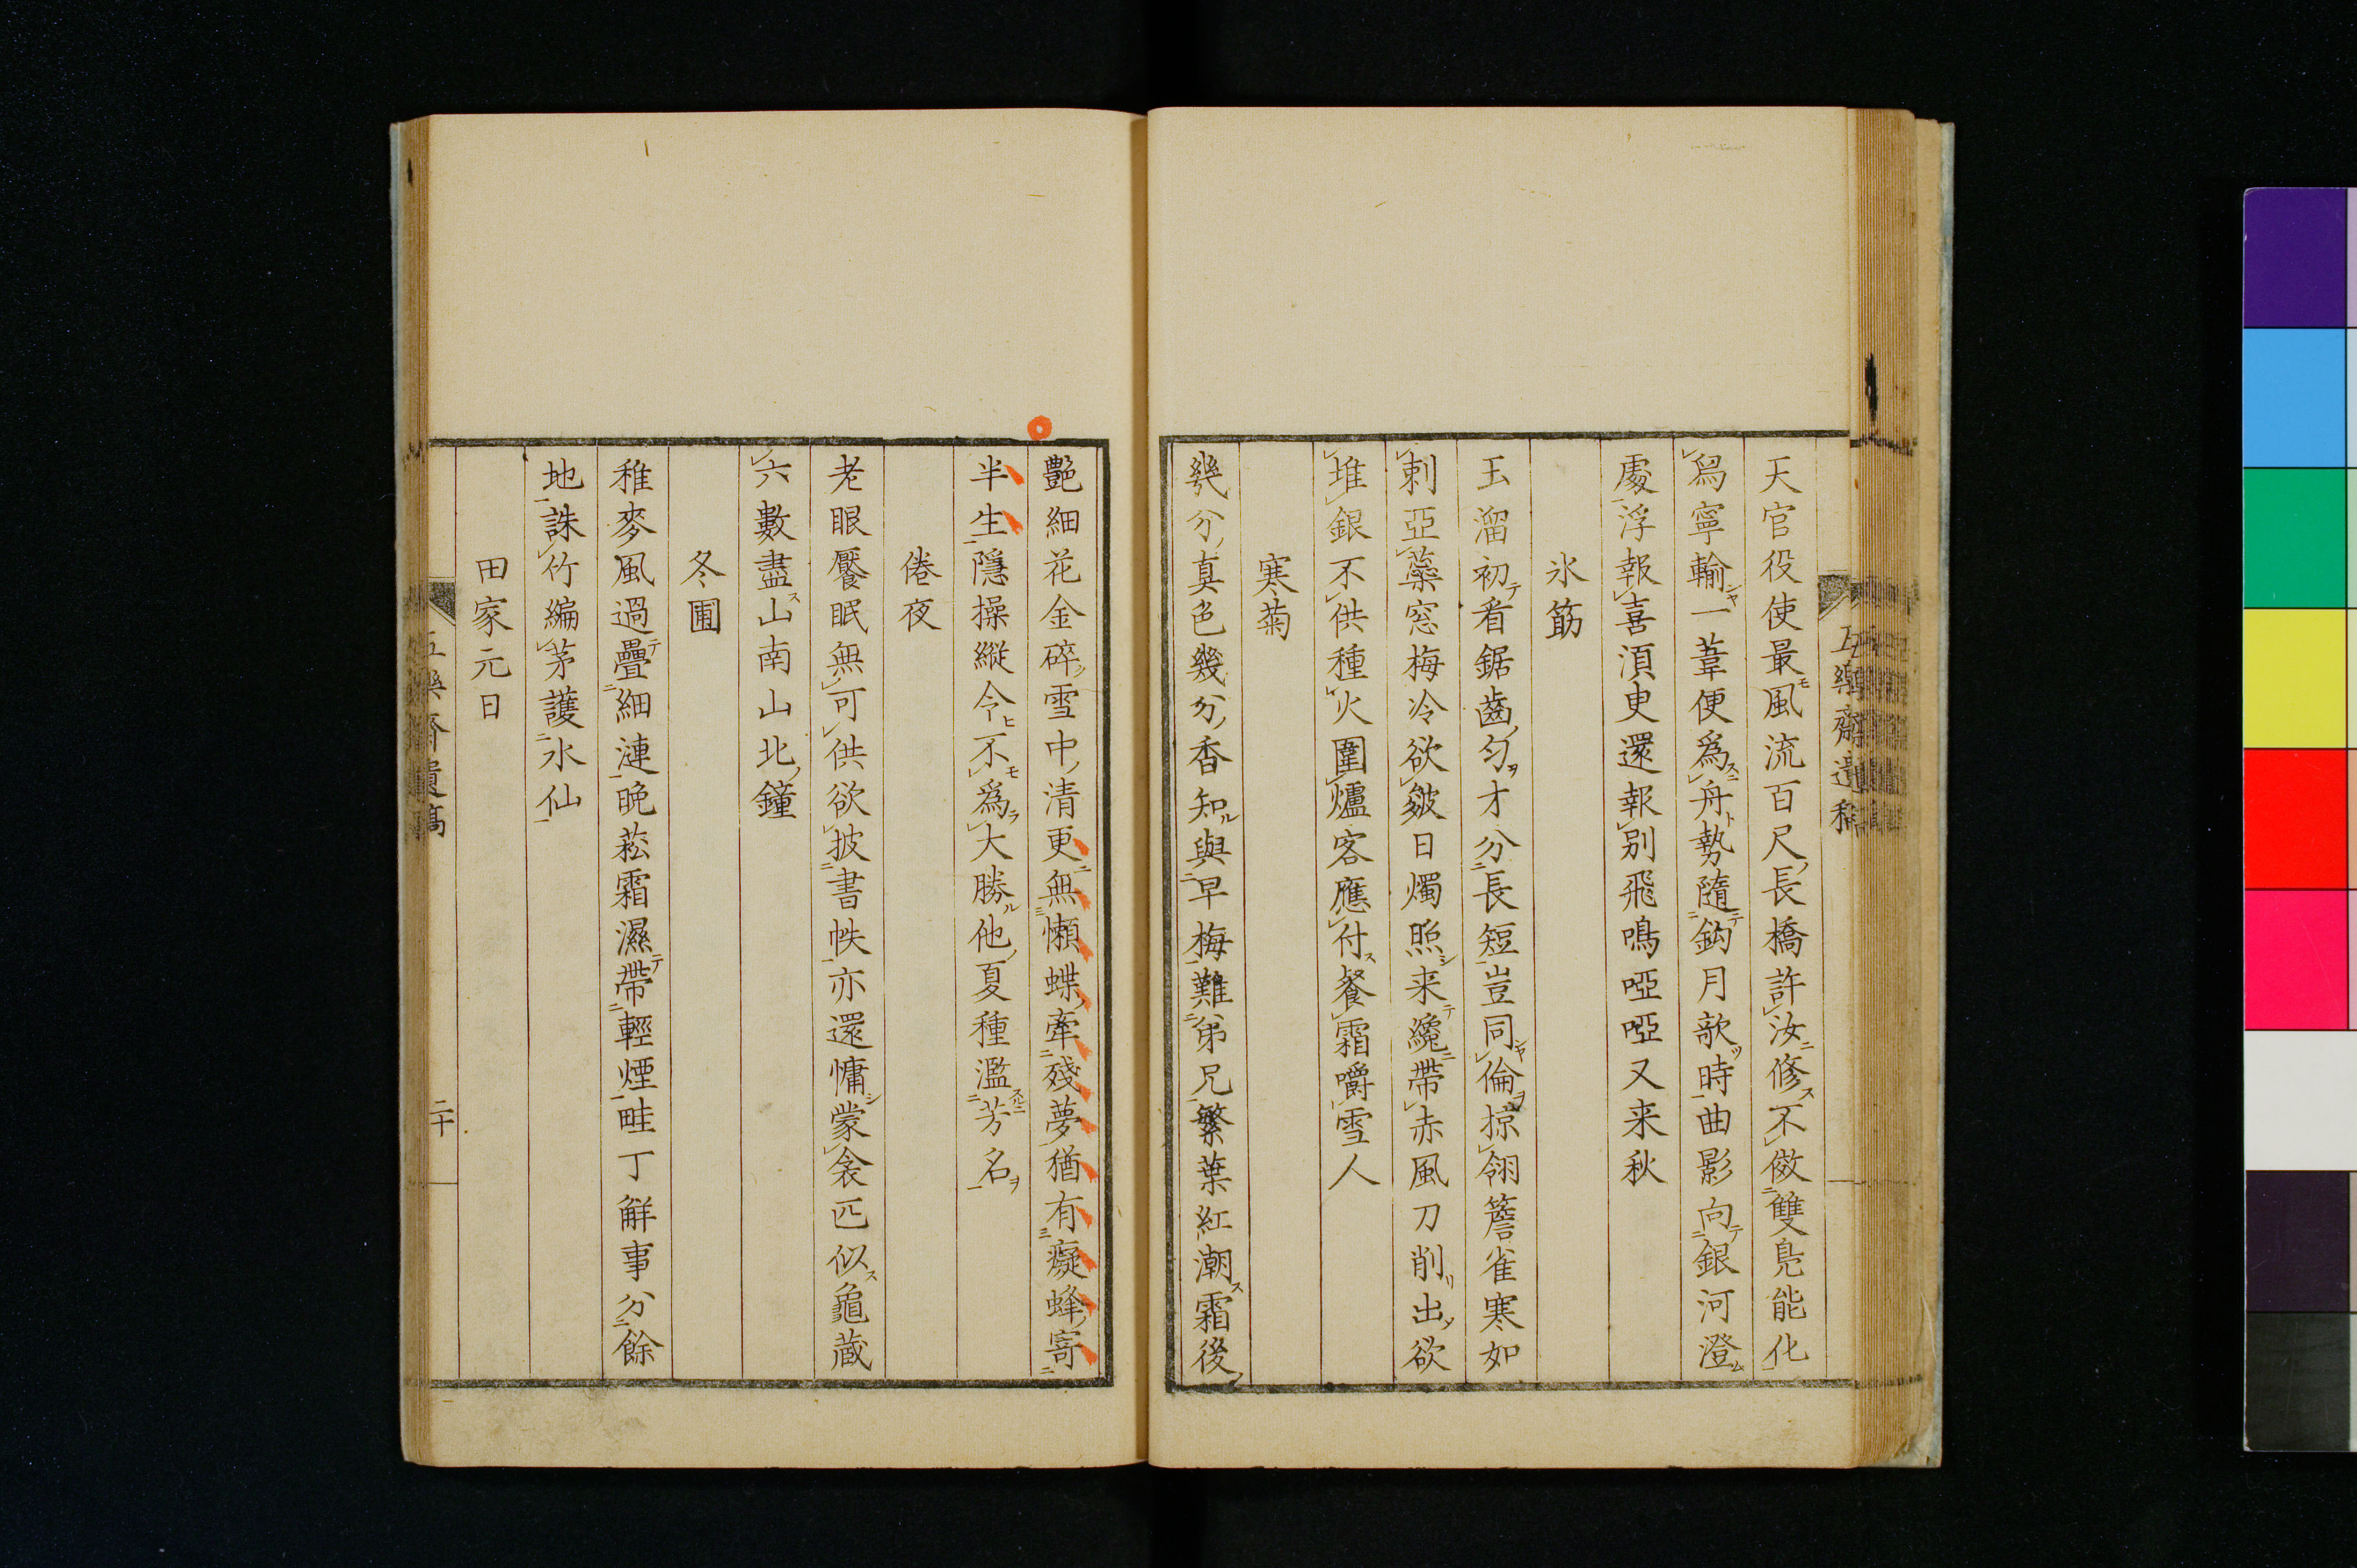 天官役使最風流百尺長橋許汝修不倣雙鳧能化
舄寧輸一葦便爲舟勢隨鈎月欹時曲影向銀河澄
處浮報喜湏吏還報別飛鳴啞啞又来秋
氷筯
玉溜初看鋸齒匀才分長短豈同倫掠翎簷雀寒如
刺亞蘂窓梅冷欲皴日燭照来纔帶赤風刀削出欲
堆銀不供種火圍爐客應付餐霜嚼雪人
寒菊
幾分真色幾分香知與早梅難弟兄繁葉紅潮霜後
艷細花金碎雪中清更無懶蝶牽殘夢猶有癡蜂寄
半生隱操縱令不爲大勝他夏種濫芳名
倦夜
老眼饜眠無可供欲披書帙亦還慵蒙衾匹似龜蔵
六數盡山南山北鐘
冬圃
稚麥風過疊細漣晩菘霜濕帶輕煙畦丁解事分餘
地誅竹編茅護水仙
田家元日
二十